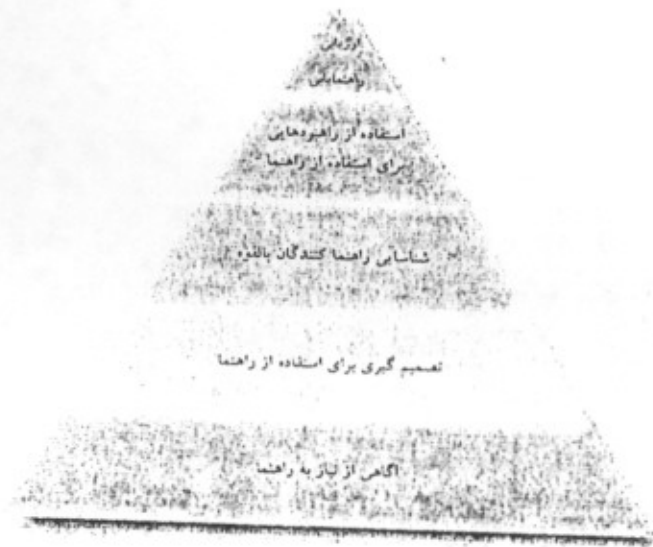 ارزیابی
راهنمایابی
استفاده از راهبردهایی
برای استفاده از راهنما
شناسایی راهنما کنندگان بالقوه
تصمیم گیری برای استفاده از راهنما
آگاهی از نیاز به راهنما